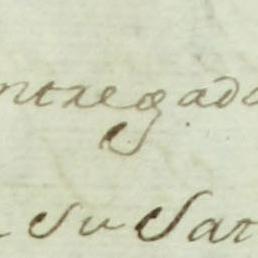 ntregado
su Sat